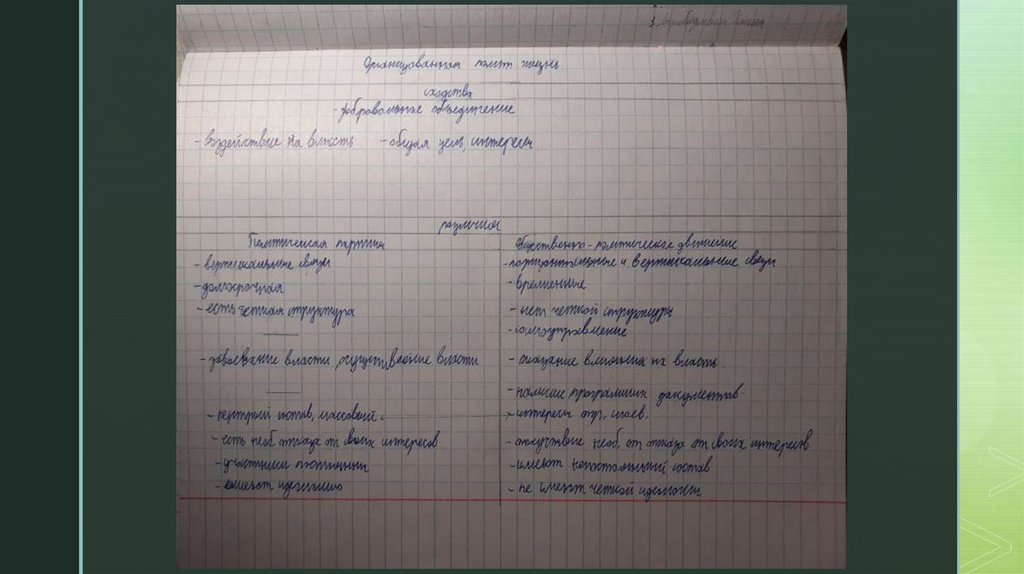 Организованная полит жизнь
сходства
- добровольное объединение
- воздействие на власть - общая цель, интересы
различия
Политическая партия Общественно-политическое движение
- вертикальные связи - горизонтальные и вертикальные связи
- долгосрочная - временные
- есть четкая структура - нет четкой структуры
- самоуправление
- завоевание власти, осуществление власти - оказание влияния на власть.
- наличие программных документов
- пестрый состав, массовый. - интересы отд. слоев.
- есть необ отказа от своих интересов - отсутствие необ. от отказа от своих интересов
- участники постоянны - имеют непостоянный состав
- имеют идеологию - не имеют четкой идеологии